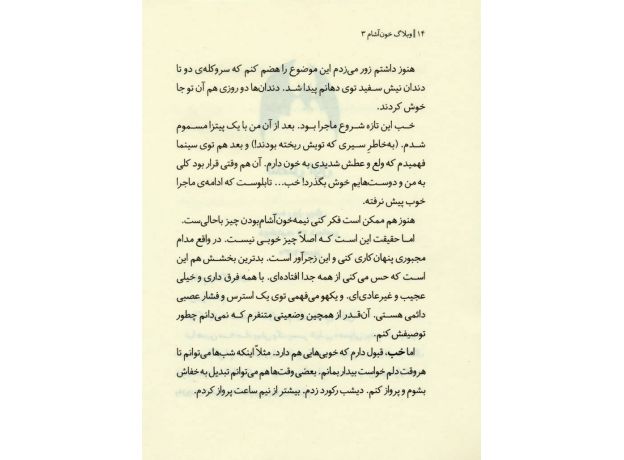 ۱۴ | وبلاگ خون‌آشام ۳
هنوز داشتم زور می‌زدم این موضوع را هضم کنم که سروکله‌ی دو تا
دندان نیش سفید توی دهانم پیدا شد. دندان‌ها دو روزی هم آن تو جا
خوش کردند.
خب این تازه شروع ماجرا بود. بعد از آن من با یک پیتزا مسموم
شدم. (به‌خاطرِ سیری که تویش ریخته بودند!) و بعد هم توی سینما
فهمیدم که ولع و عطش شدیدی به خون دارم. آن هم وقتی قرار بود کلی
به من و دوست‌هایم خوش بگذرد! خب... تابلوست که ادامه‌ی ماجرا
خوب پیش نرفته.
هنوز هم ممکن است فکر کنی نیمه‌خون‌آشام‌بودن چیز باحالی‌ست.
اما حقیقت این است که اصلاً چیز خوبی نیست. در واقع مدام
مجبوری پنهان‌کاری کنی و این زجرآور است. بدترین بخشش هم این
است که حس می‌کنی از همه جدا افتاده‌ای. با همه فرق داری و خیلی
عجیب و غیرعادی‌ای. و یکهو می‌فهمی توی یک استرس و فشار عصبی
دائمی هستی. آن‌قدر از همچین وضعیتی متنفرم که نمی‌دانم چطور
توصیفش کنم.
اما خب، قبول دارم که خوبی‌هایی هم دارد. مثلاً اینکه شب‌ها می‌توانم تا
هر وقت دلم خواست بیدار بمانم. بعضی وقت‌ها هم می‌توانم تبدیل به خفاش
بشوم و پرواز کنم. دیشب رکورد زدم. بیشتر از نیم ساعت پرواز کردم.